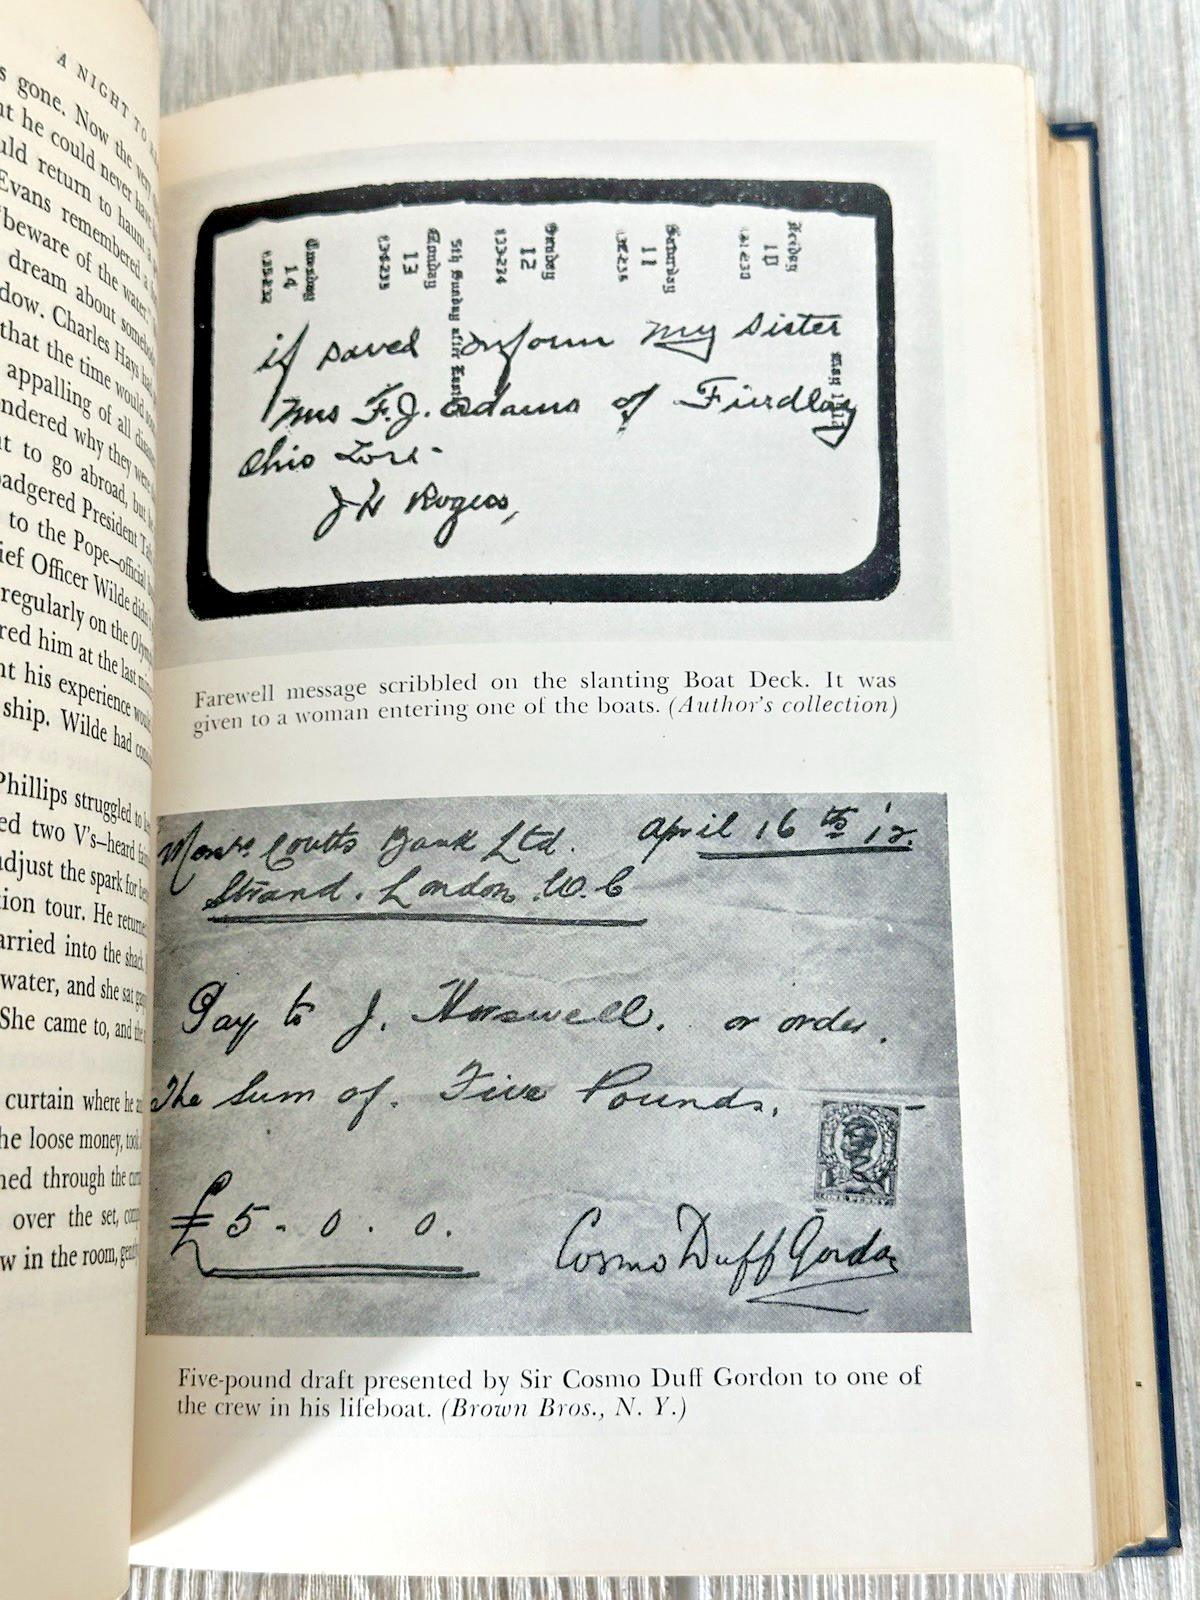 A NIGHT TO
s gone. Now the very
he could never have
uld return to haunt
Evans remembered a
"beware of the water."
dream about somebody
dow. Charles Hays had
that the time would soon
appalling of all
ndered why they were
t to go abroad, but
badgered President
to the Pope—official
ief Officer Wilde didn't
regularly on the
red him at the last
t his experience would
ship. Wilde had
Phillips struggled to
ed two V's—heard
adjust the spark for
tion tour. He returned
arried into the shack
water, and she sat
She came to, and
curtain where he
he loose money, took
hed through the
over the set,
w in the room,
Friday
10
Saturday
11
Sunday
12
5th Sunday after
Monday
13
Tuesday
14
if saved inform my sister
Mrs F.J. Adams of Findlay
Ohio Lost-
J H Rogers,
Farewell message scribbled on the slanting Boat Deck. It was
given to a woman entering one of the boats. (Author's collection)
Coutts Bank Ltd. April 16th '12.
Strand. London W.C
Pay to J. Horswell. or order.
The Sum of. Five Pounds.
£5-0.0.
Cosmo Duff Gordon
Five-pound draft presented by Sir Cosmo Duff Gordon to one of
the crew in his lifeboat. (Brown Bros., N. Y.)